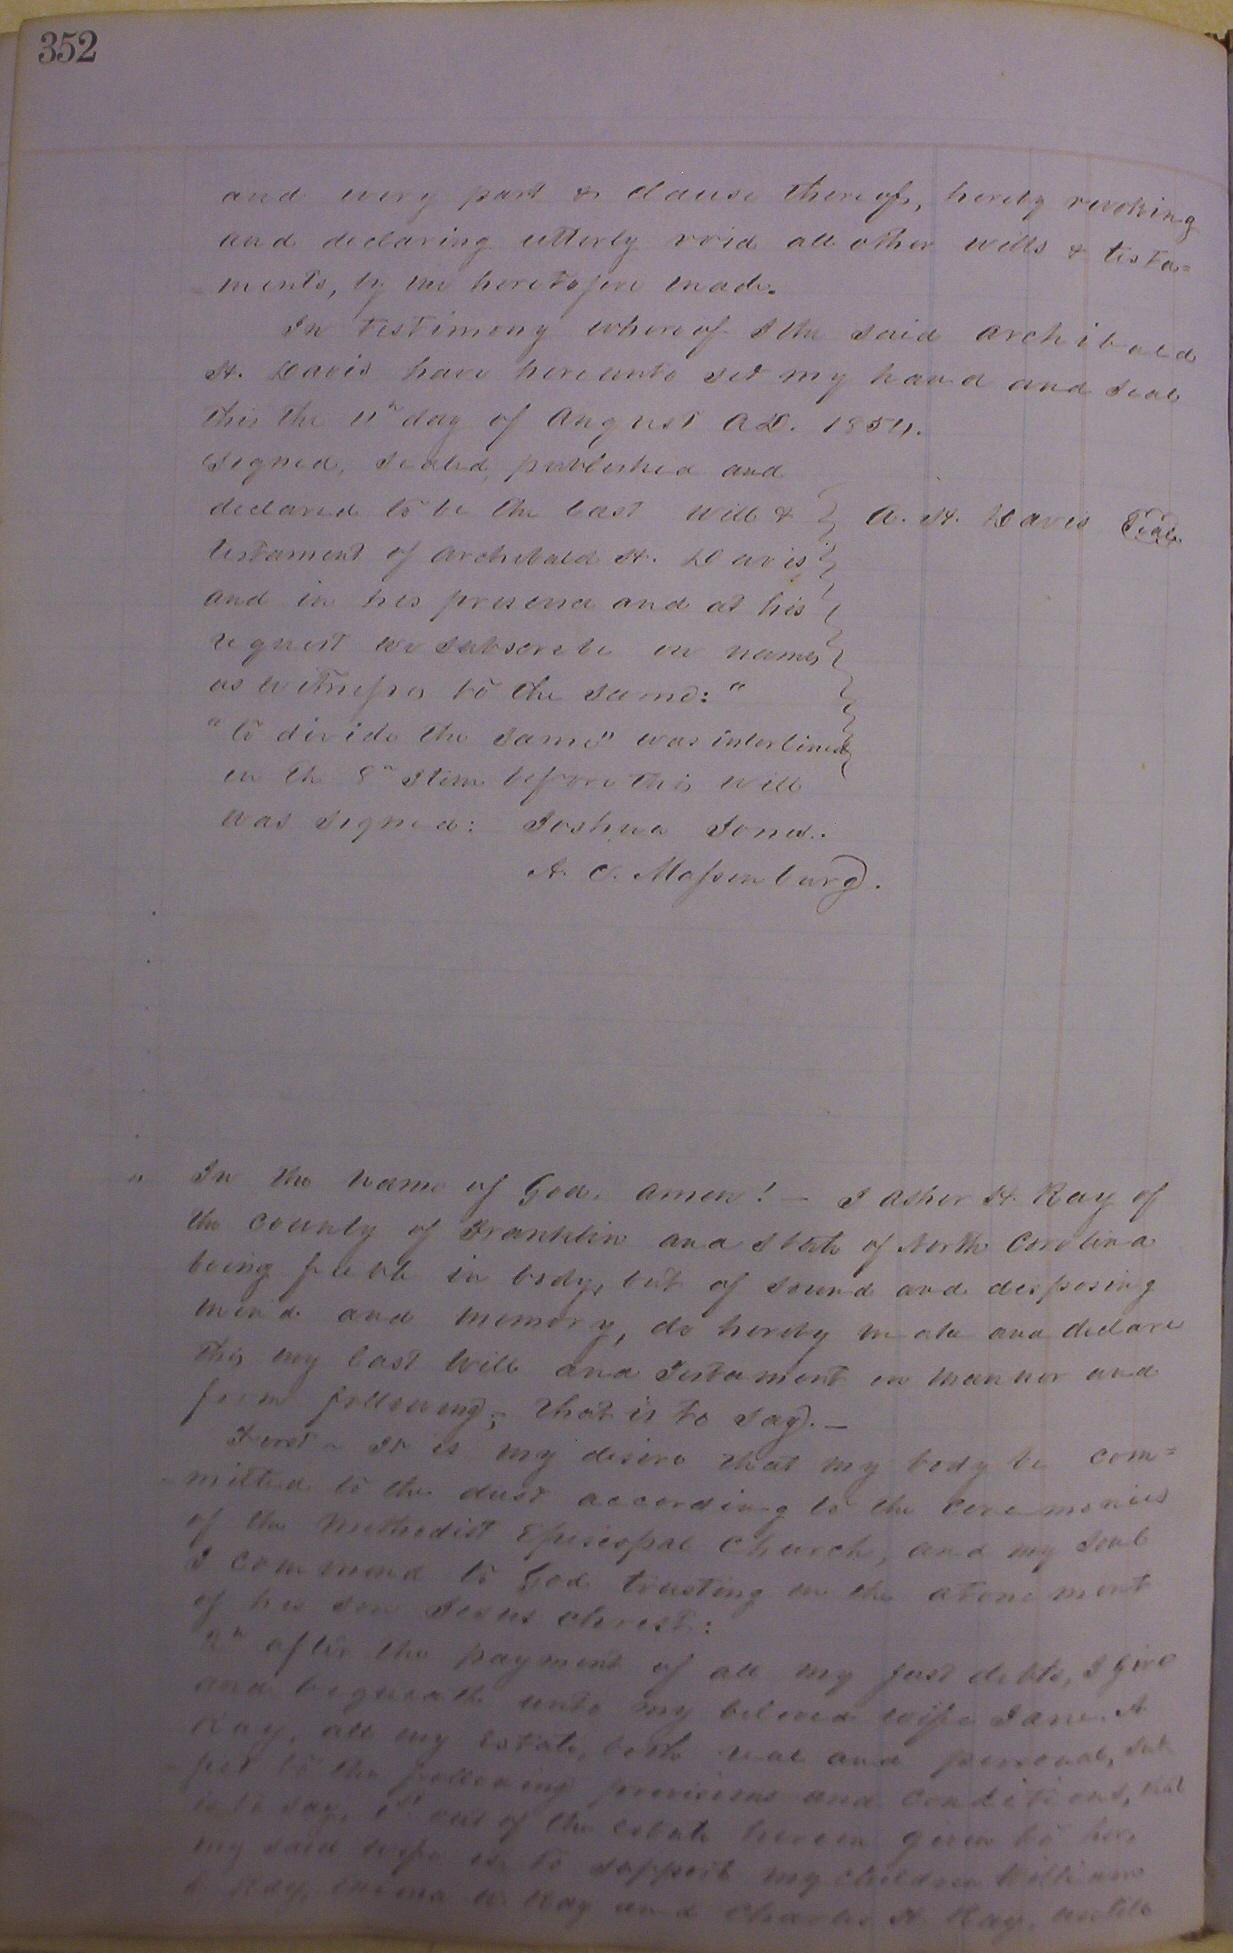 352
and every part & clause thereof, hereby revoking
and declaring utterly void all other wills & testa=
ments, by me heretofore made.
In testimony whereof I the said Archibald
H. Davis have hereunto set my hand and seal
this the 11th day of August A.D. 1854.
Signed, sealed, published and
declared to be the last will & A. H. Davis Seal
testament of Archibald H. Davis
and in his presence and at his
request we subscribe our names
as witnesses to the same:"
"to divide the same" was interlined
in the 8th Item before this will
was signed: Joshua Jones.
A. C. Massenburg.
" In the name of God. Amen! — I Asher H. Ray of
the County of Franklin and State of North Carolina
being feeble in body, but of sound and disposing
mind and memory, do hereby make and declare
this my last Will and Testament in manner and
form following; that is to say. —
First - It is my desire that my body be com=
mitted to the dust according to the ceremonies
of the Methodist Episcopal Church, and my soul
I commend to God trusting in the atonement
of his son Jesus Christ:
2nd after the payment of all my just debts, I give
and bequeath unto my beloved wife Jane A
Ray, all my estate, both real and personal, sub
ject to the following provisions and conditions, that
is to say, 1st out of the estate herein given to her,
my said wife is to support my children William
Ray, W. Ray and Charles H. Ray, until